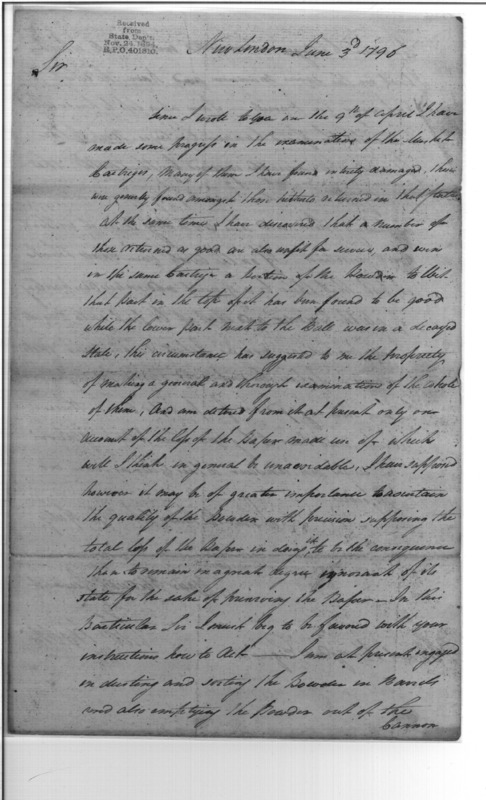 Received
from
State Dep't.
Nov. 24, 1894.
R.P.O. 401820.
New London June 3d 1796
Sir
Since I wrote to you on the 9th of April I have
made some progress in the examination of the Musket
Cartriges, Many of them I have found intirely damaged, these
were generly found amongst those hitherto returned in that State
At the same time I have discovered that a number of
those returned as good are also unfit for service, and even
in the same Cartrige a portion of the Powder to Wit
that part in the top of it has been found to be good
while the lower part next to the Ball was in a decayed
State, this circumstance has suggested to me the propriety
of making a general and through examination of the whole
of them, And am detered from it at present only on
account of the loss of the Paper made use of which
will I think in general be unavoidable, I have supposed
however it may be of greater importance to ascertain
the quality of the Powder with precision supposing the
total loss of the Paper in doing it to be the consequence
than to remain in a great degree ignorant of its
state for the sake of preserving the Paper – In this
Particular Sir I must beg to be favored with your
instructions how to Act — I am at present engaged
in dusting and sorting the Powder in Barrels
and also emptying the Powder out of the
Cannon